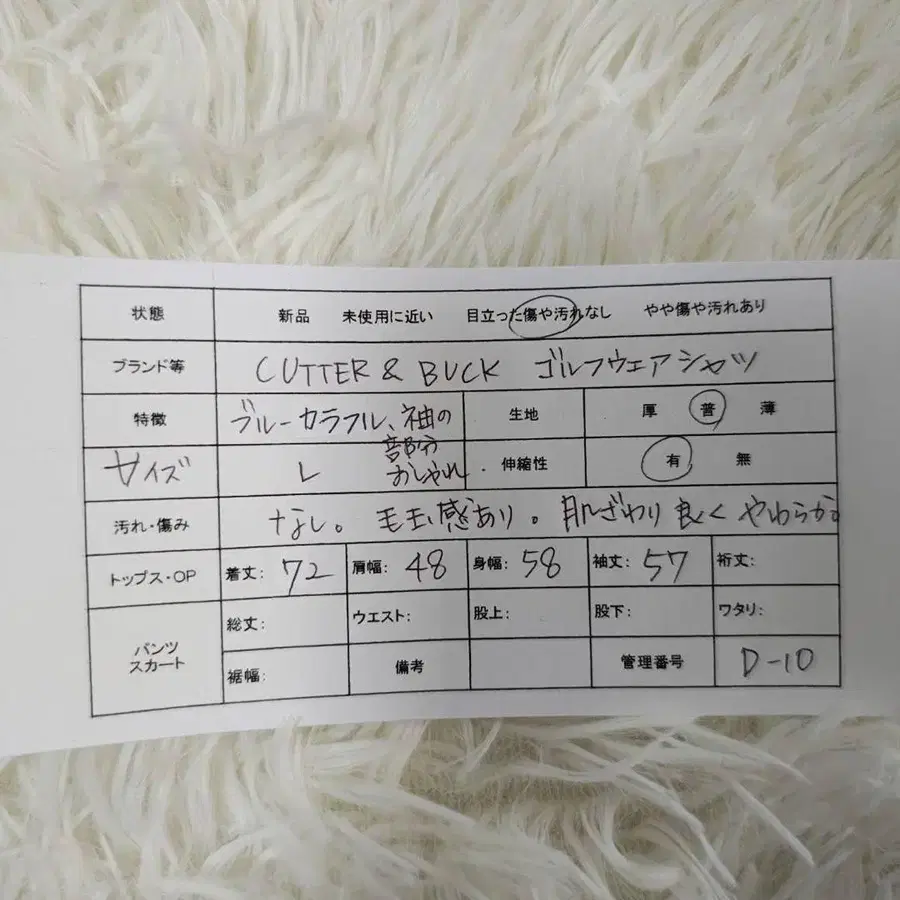 状態 新品 未使用に近い 目立った傷や汚れなし やや傷や汚れあり
ブランド等 CUTTER & BUCK ゴルフウェアシャツ
特徴 ブルーカラフル、袖の部分おしゃれ. 生地 厚 普 薄
サイズ L 伸縮性 有 無
汚れ・傷み なし。毛玉感あり。肌ざわり良くやわらか
トップス・OP 着丈: 72 肩幅: 48 身幅: 58 袖丈: 57 裄丈:
パンツ スカート 総丈: ウエスト: 股上: 股下: ワタリ:
裾幅: 備考 管理番号 D-10